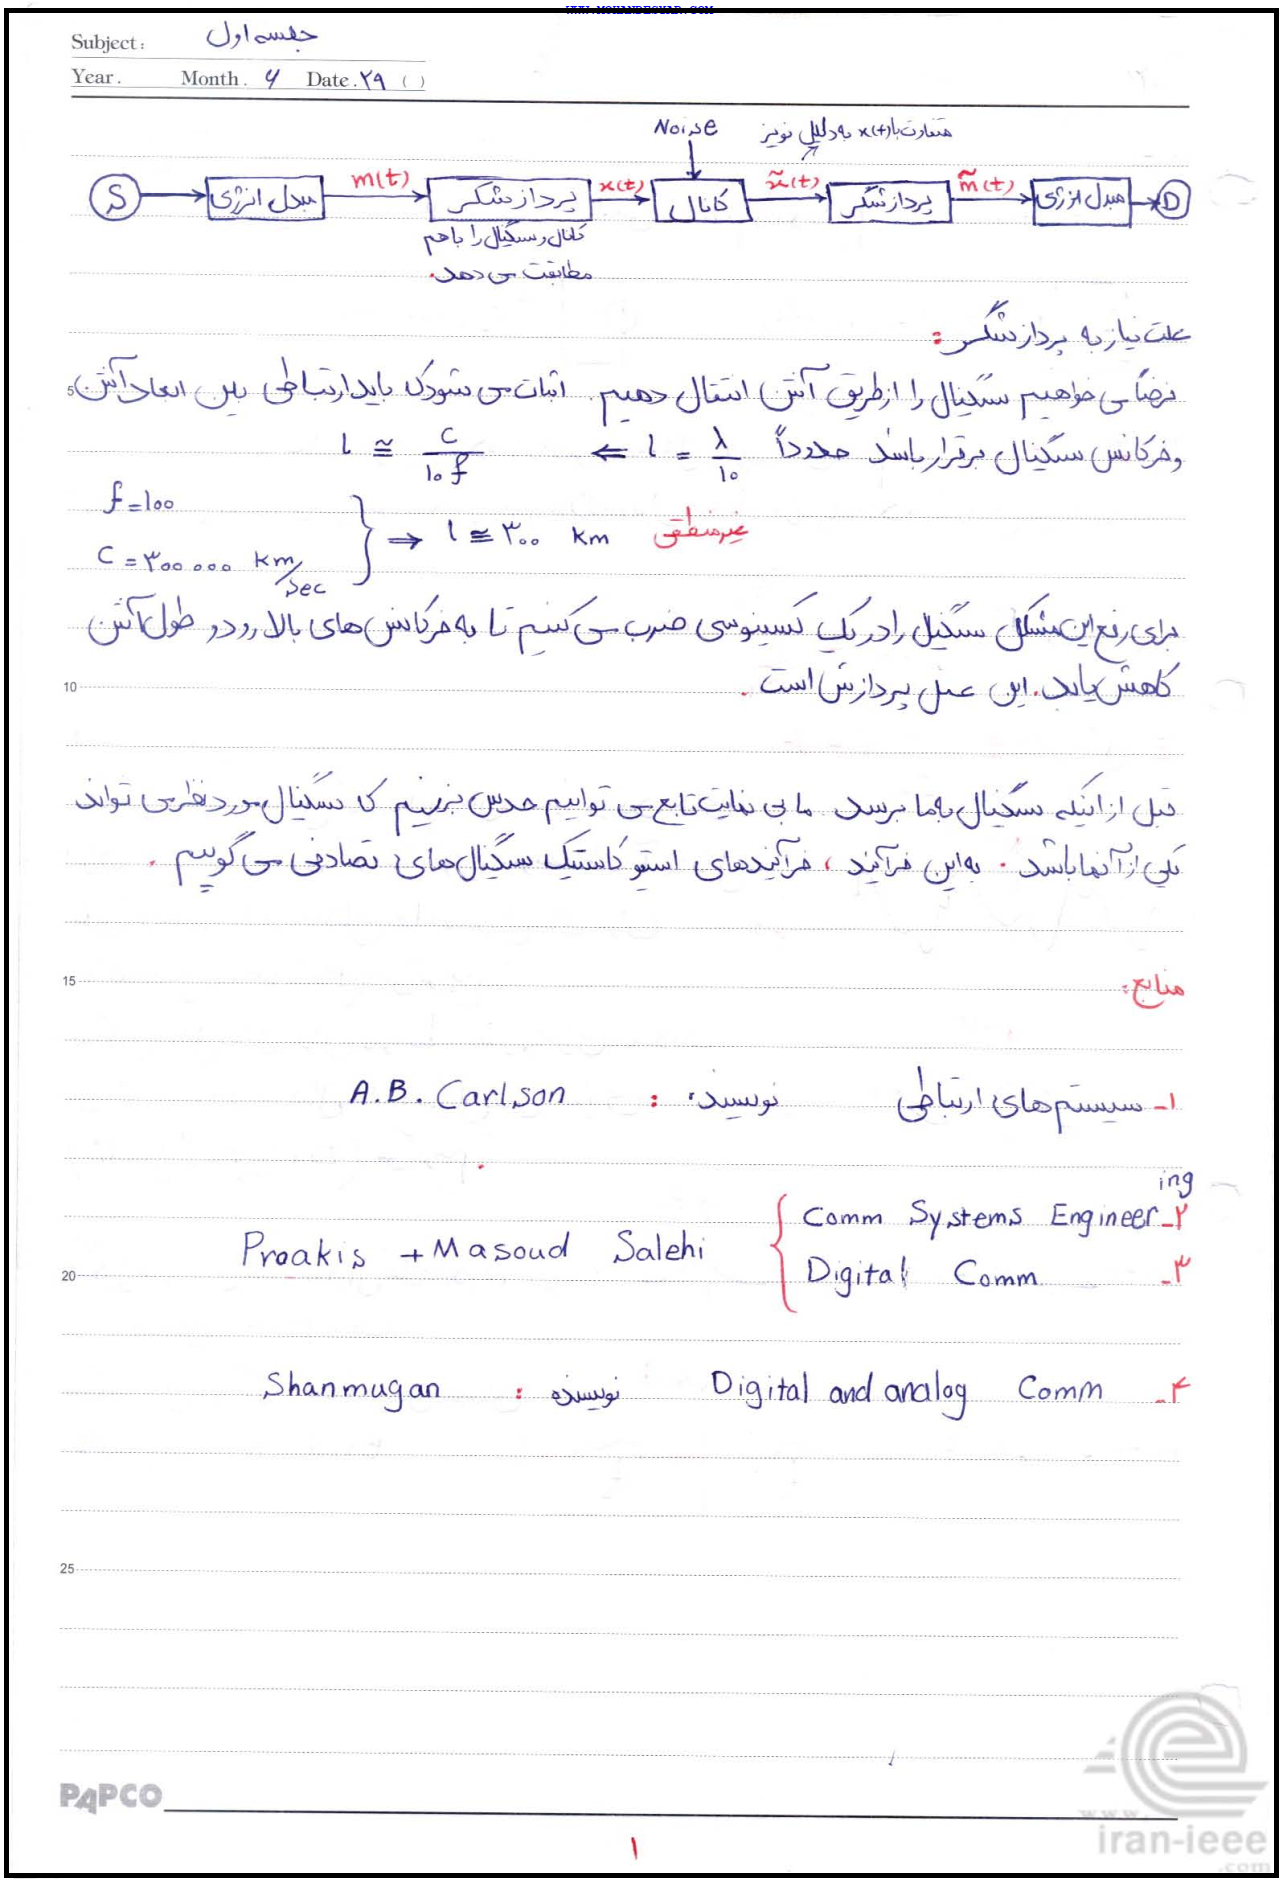 WWW.MOHANDESYAR.COM
Subject: جلسه اول
Year. Month. ۶ Date. ۲۹ ( )
Noise متفاوت با x(t) به دلیل نویز
S مبدل انرژی m(t) پردازشگر x(t) کانال x̃(t) پردازشگر m̃(t) مبدل انرژی D
کانال و سیگنال را با هم
مطابقت می دهد.
علت نیاز به پردازشگر:
فرضاً می خواهیم سیگنال را از طریق آنتن انتقال دهیم. اثبات می شود که باید ارتباطی بین ابعاد آنتن
5
و فرکانس سیگنال برقرار باشد حدوداً l = λ/10 ⇐ l ≅ c/10f
f = 100
c = 300 000 km/sec } ⇒ l ≅ 300 km غیرمنطقی
برای رفع این مشکل سیگنال را در یک کسینوسی ضرب می کنیم تا به فرکانس های بالا رود و طول آنتن
10
کاهش یابد. این عمل پردازش است.
قبل از اینکه سیگنال به ما برسد ما بی نهایت تابع می توانیم حدس بزنیم که سیگنال مورد نظر می تواند
یکی از آنها باشد. به این فرآیند، فرآیندهای استوکاستیک سیگنال های تصادفی می گوییم.
15
منابع:
۱- سیستم های ارتباطی نویسنده: A.B. Carlson
۲- Comm Systems Engineering
Proakis + Masoud Salehi
20
۳- Digital Comm
۴- Digital and analog Comm نویسنده: Shanmugan
25
PAPCO
۱
www.
iran-ieee
.com